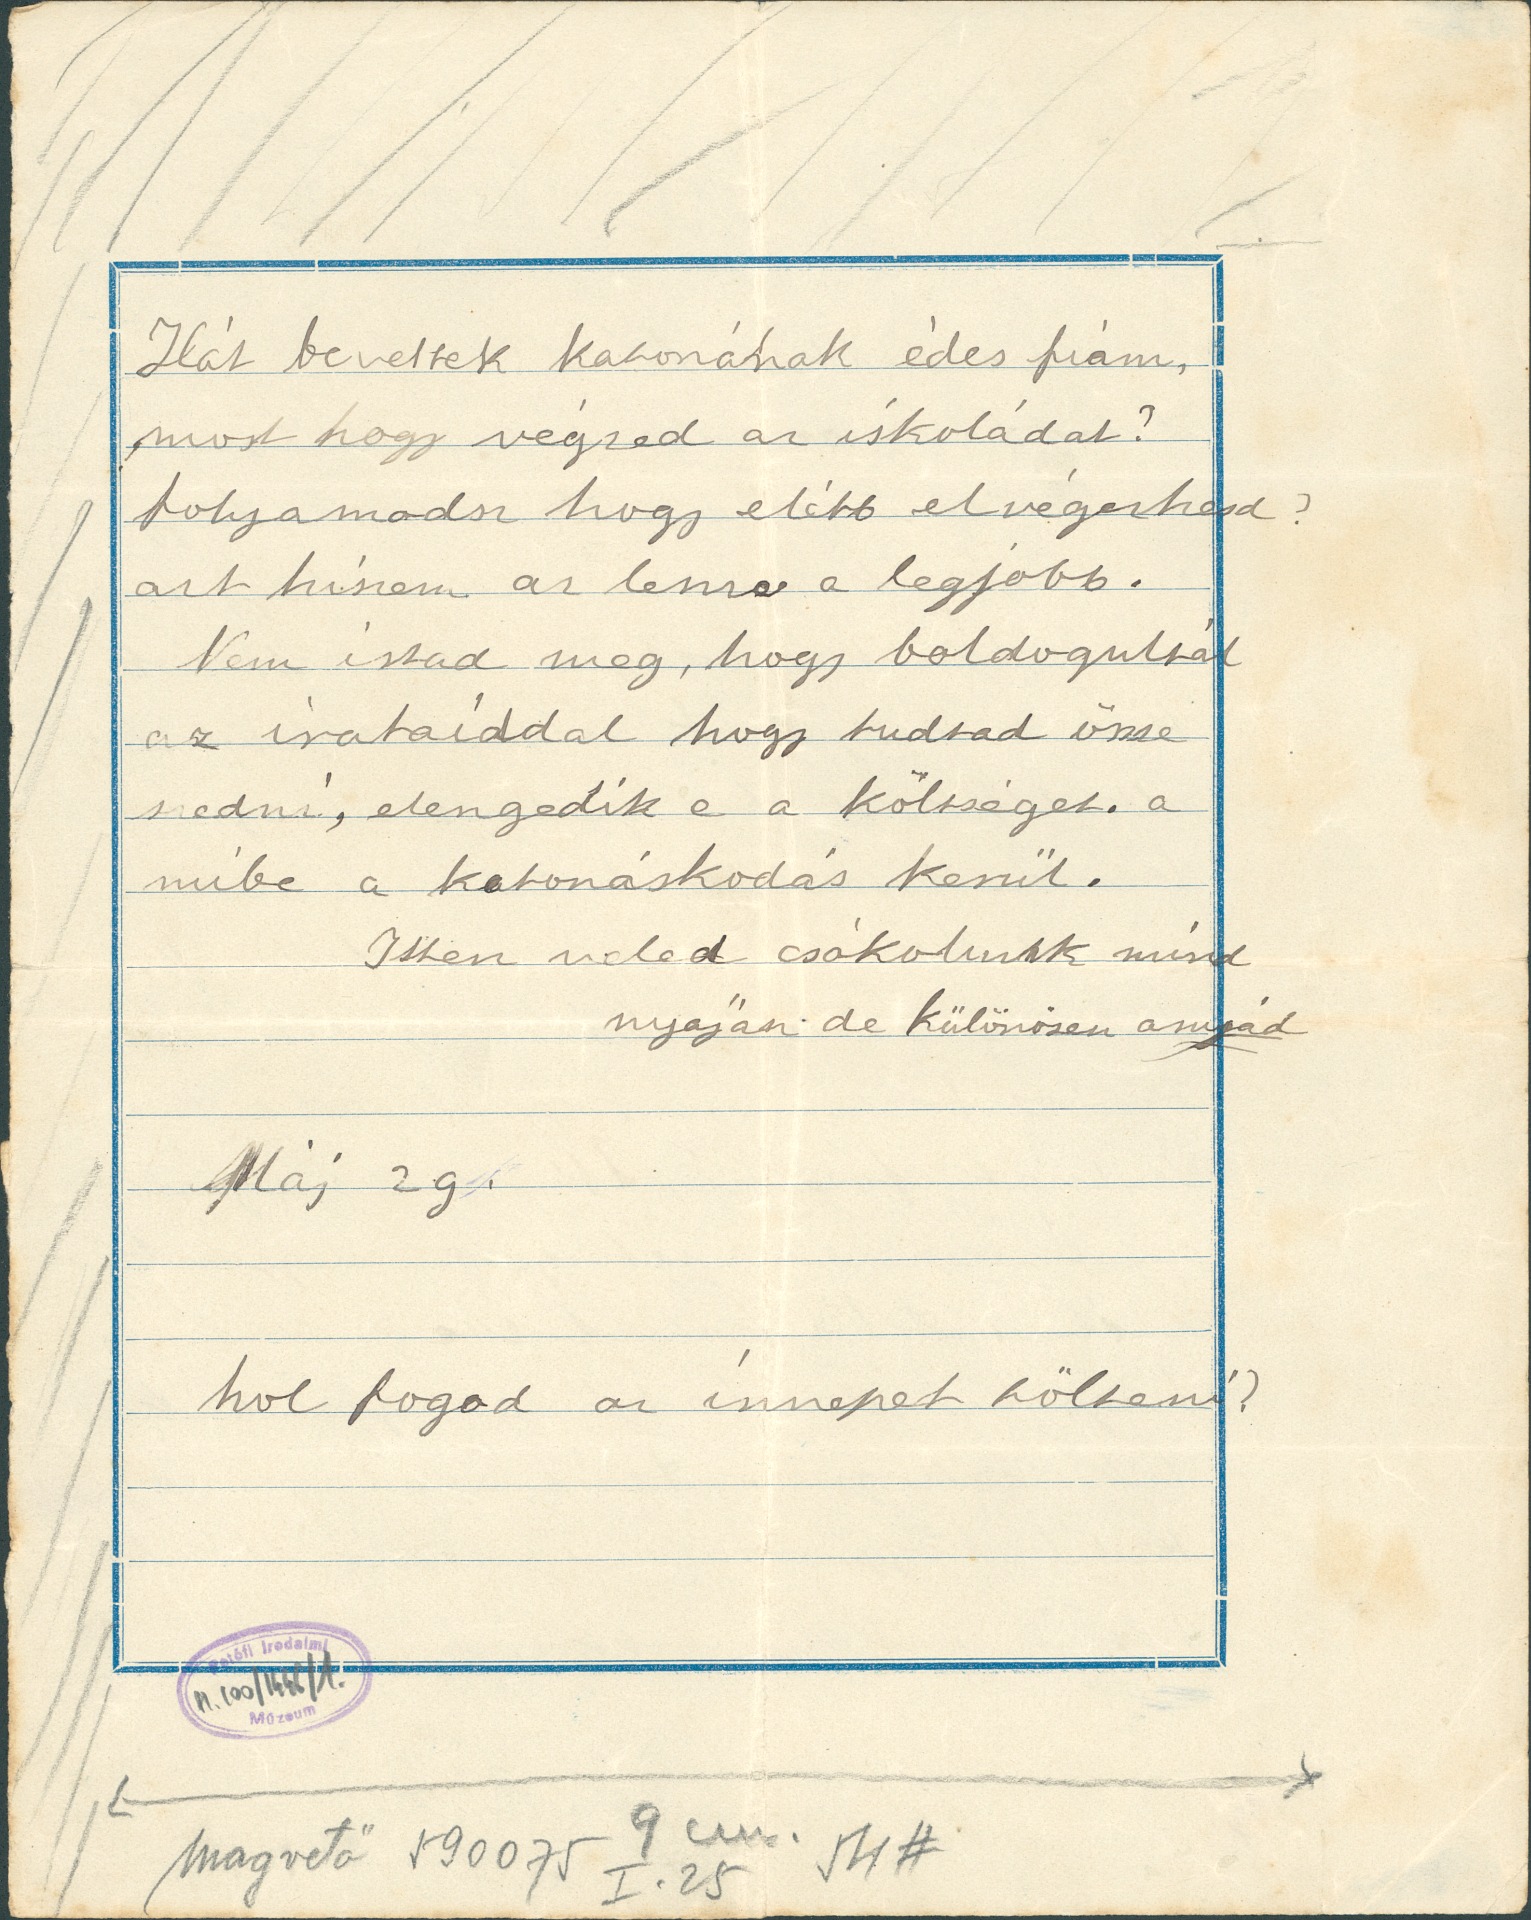 Hát bevettek katonának édes fiam,
most hogy végzed az iskoládat?
folyamodsz hogy elébb elvégezhesd?
azt hiszem az lenne a legjobb.
Nem írtad meg, hogy boldogultál
az irataiddal hogy tudtad össze
szedni, elengedik e a költséget. a
mibe a katonáskodás kerül.
Isten veled csókolunk mind
nyaján de különösen anyád
Máj 29.
hol fogod az ünnepet tölteni?
Petőfi Irodalmi
Múzeum
magvető 590075 9 cm.
I. 25